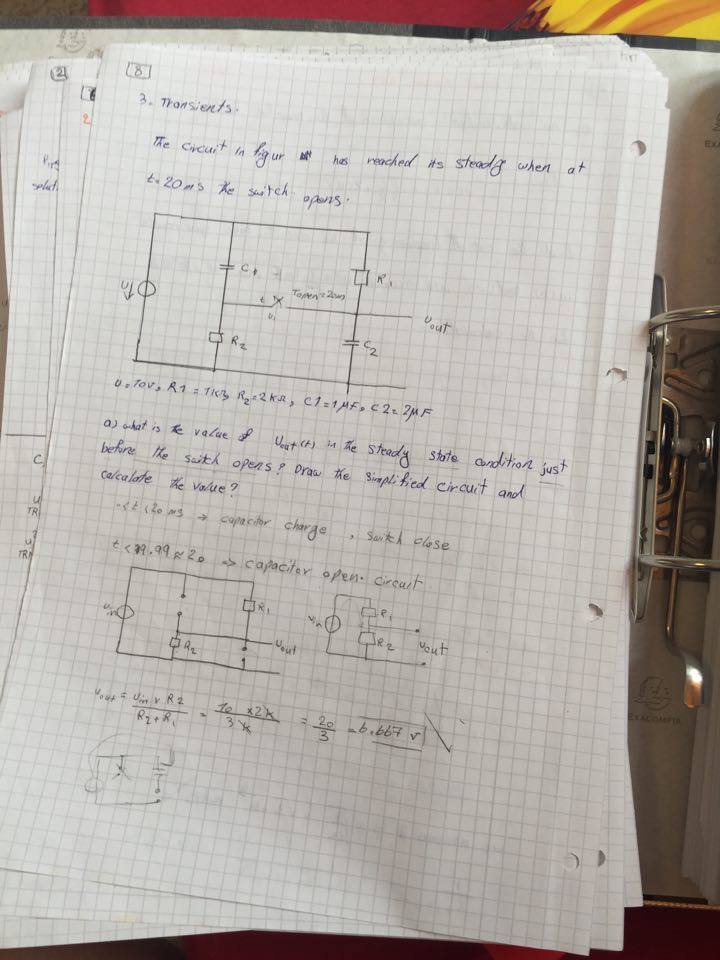 8
2
3. Transients.
The circuit in figur has reached its steady when at
t=20ms the switch opens.
U
C1
R1
t
Topen=20ms
Uout
R2
C2
U=10V, R1 = 1KΩ, R2=2KΩ, C1=1μF, C2=2μF
a) what is the value of Uout(t) in the steady state condition just
before the switch opens? Draw the simplified circuit and
calculate the value?
capacitor charge, switch close
t<19.99≈20 => capacitor open circuit
Uin
R1
R2
Uout
Vin
R1
R2
Uout
Uout = Uin x R2 / R2+R1 = 10 x2k / 3k = 20 / 3 = 6.667 V
EXACOMPTA